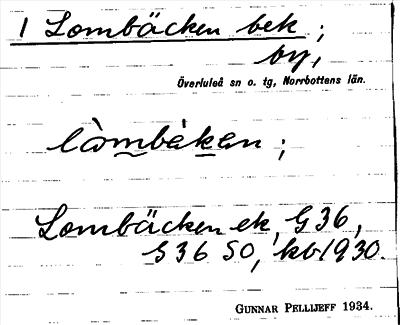 1 Lombäcken bek ;
by,
Överluleå sn o. tg, Norrbottens län.
lòmbäkan ;
Lombäcken ek, G36,
S36 SO, kb1930.
GUNNAR PELLIJEFF 1934.